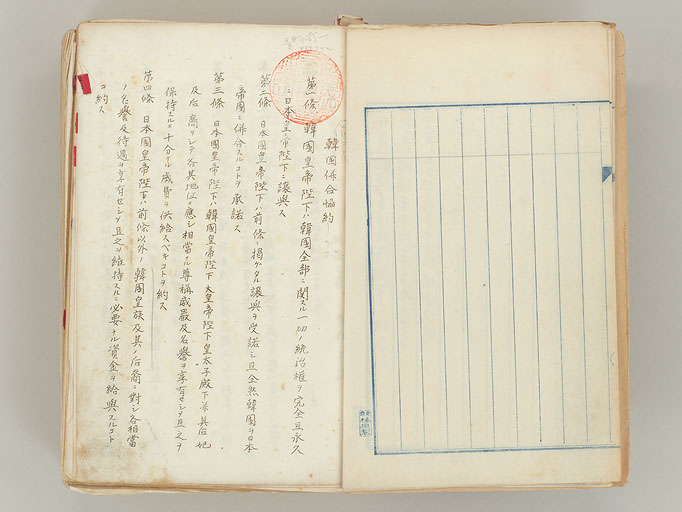 韓國併合協約
第一條 韓國皇帝陛下ハ韓國全部ニ関スル一切ノ統治權ヲ完全且永久
ニ日本皇帝陛下ニ讓與ス
第二條 日本國皇帝陛下ハ前條ニ掲ゲタル讓與ヲ受諾シ且全然韓國ヲ日本
帝國ニ併合スルコトヲ承諾ス
第三條 日本國皇帝陛下ハ韓國皇帝陛下大皇帝陛下皇太子殿下並其后妃
及后裔ヲシテ各其地位ニ應シ相當ナル尊稱威嚴及名譽ヲ享有セシメ且之ヲ
保持スルニ十分ナル歳費ヲ供給スベキコトヲ約ス
第四條 日本國皇帝陛下ハ前條以外ノ韓國皇族及其ノ后裔ニ對シ各相當
ノ名譽及待遇ヲ享有セシメ且之ヲ維持スルニ必要ナル資金ヲ給與スルコト
ヲ約ス